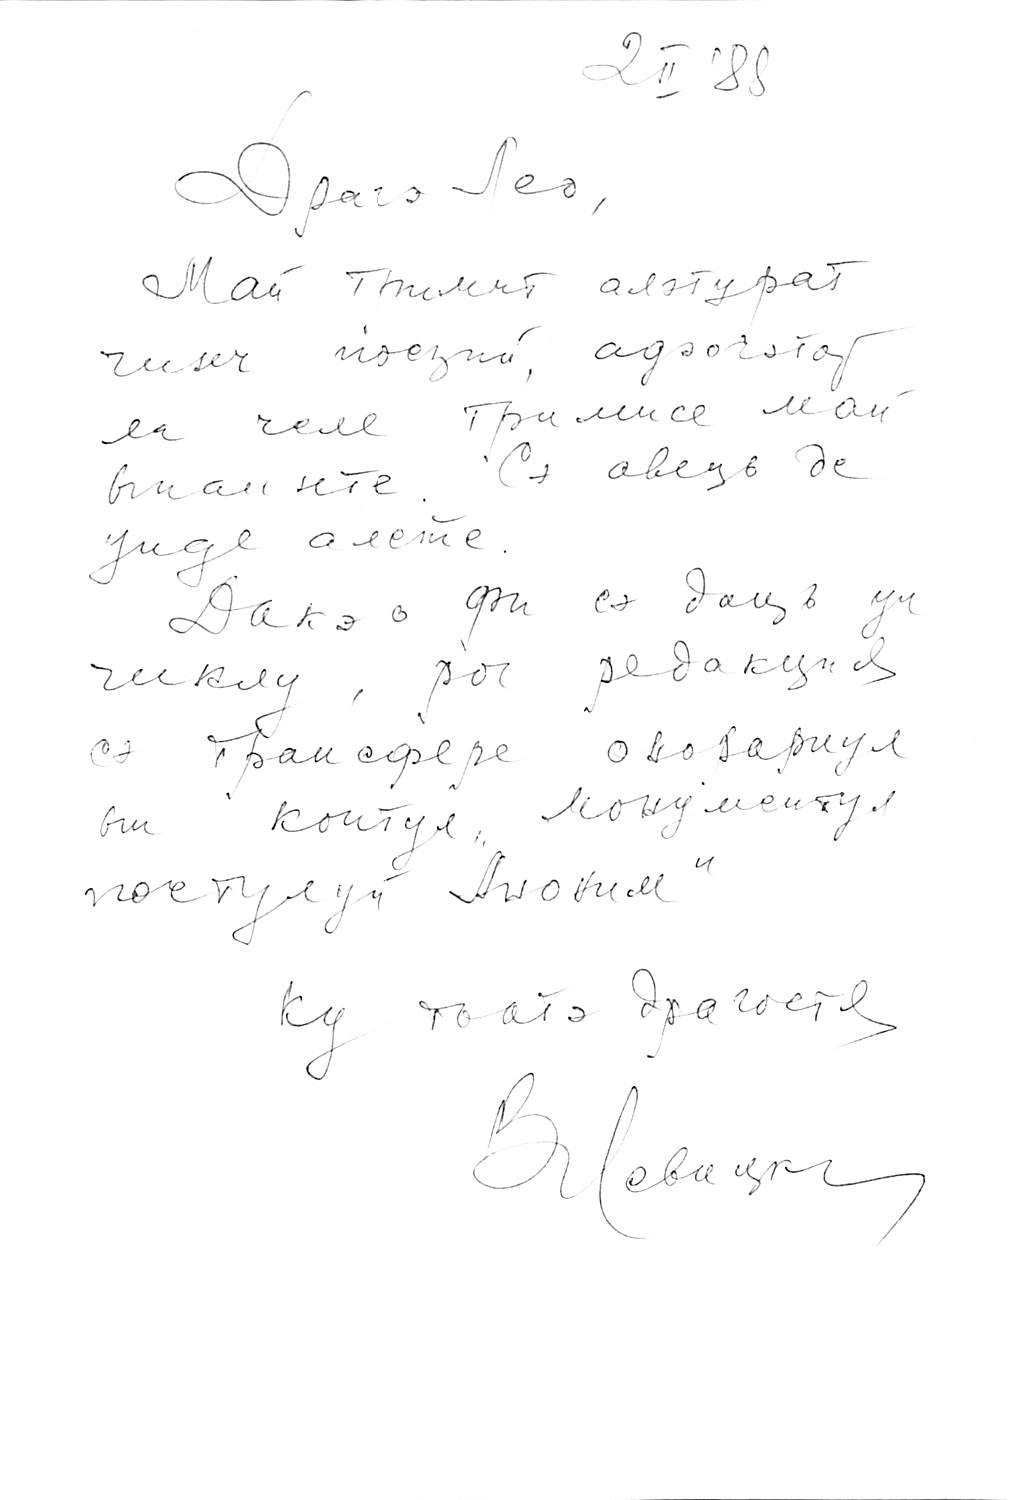 2 II '88
Драгэ Лео,
Май тримит алэтурат
чинч поезий, адэогате
ла челе тримисе май
ынаинте. Сэ авець де
унде алеӂе.
Дакэ о фи сэ даць ун
чиклу, рог редакция
сэ трансфере онорариул
ын контул „Монументул
поетулуй Аноним"
Ку тоатэ драгостя
В Левицки